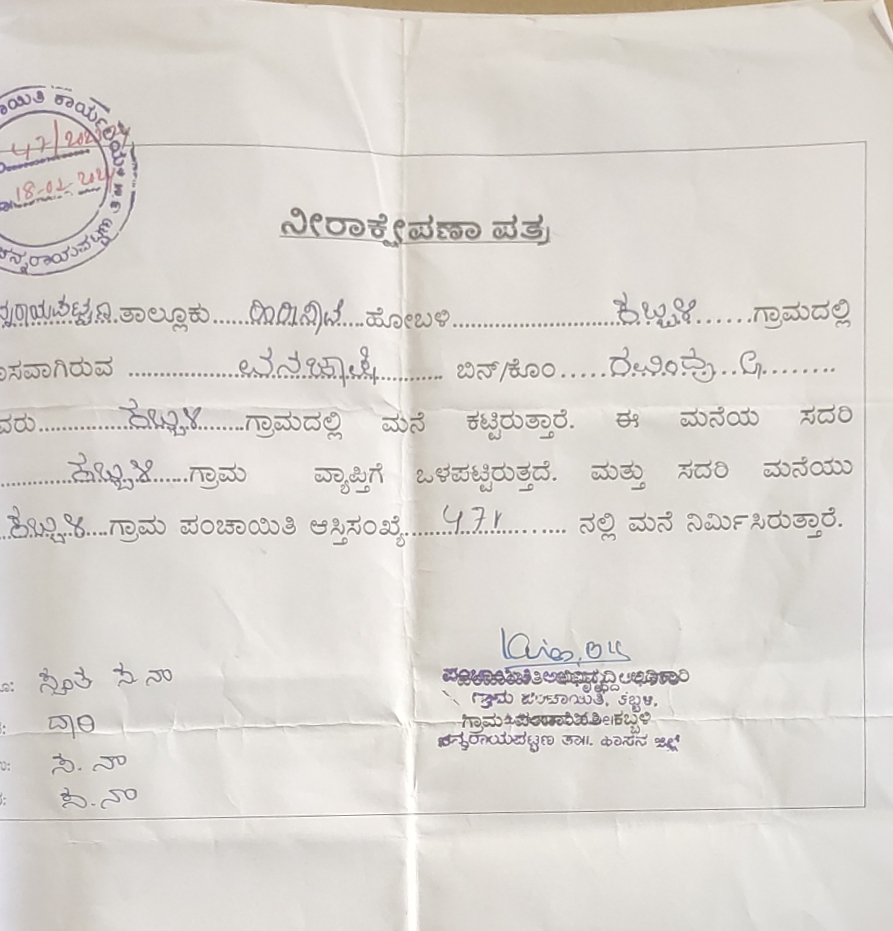 ಾಯಿತಿ ಕಾರ್ಯಾಲಯ
47/2020
18-02-202
ನ್ನರಾಯಪಟ್ಟಣ
ನೀರಾಕ್ಷೇಪಣಾ ಪತ್ರ
ನ್ನರಾಯಪಟ್ಟಣ.ತಾಲ್ಲೂಕು......ಹಿರಿಸಾವೆ....ಹೋಬಳಿ..........................ಕಬ್ಬಳಿ.......ಗ್ರಾಮದಲ್ಲಿ
ಾಸವಾಗಿರುವ ................... ವನಜಾಕ್ಷಿ........... ಬಿನ್/ಕೊಂ
ವರು...............ಕಬ್ಬಳಿ.......ಗ್ರಾಮದಲ್ಲಿ ಮನೆ ಕಟ್ಟಿರುತ್ತಾರೆ. ಈ ಮನೆಯ ಸದರಿ
...........ಕಬ್ಬಳಿ......ಗ್ರಾಮ ವ್ಯಾಪ್ತಿಗೆ ಒಳಪಟ್ಟಿರುತ್ತದೆ. ಮತ್ತು ಸದರಿ ಮನೆಯು
.ಕಬ್ಬಳಿ....ಗ್ರಾಮ ಪಂಚಾಯಿತಿ ಆಸ್ತಿಸಂಖ್ಯೆ ನಲ್ಲಿ ಮನೆ ನಿರ್ಮಿಸಿರುತ್ತಾರೆ.
ಸ್ವಂತ ಸ.ನಾ
ದಾರಿ
ಸ.ನಾ
ಸ.ನಾ
ಪಂಚಾಯಿತಿ ಅಭಿವೃದ್ಧಿ ಅಧಿಕಾರಿ
ಗ್ರಾಮ ಪಂಚಾಯಿತಿ, ಕಬ್ಬಳಿ,
ಚನ್ನರಾಯಪಟ್ಟಣ ತಾ|| ಹಾಸನ ಜಿಲ್ಲೆ